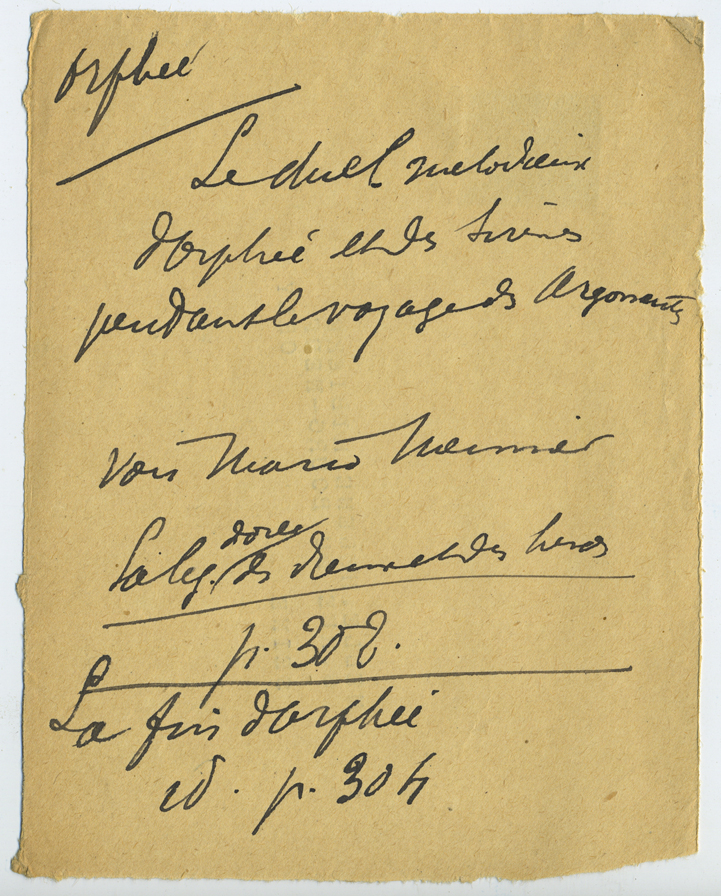 Orphée
Le duel mélodieux
d'Orphée et des Sirènes
pendant le voyage des Argonautes
Voir Mario Meunier
La lég. dorée des dieux et des héros
p. 302.
La fin d'Orphée
id. p. 304